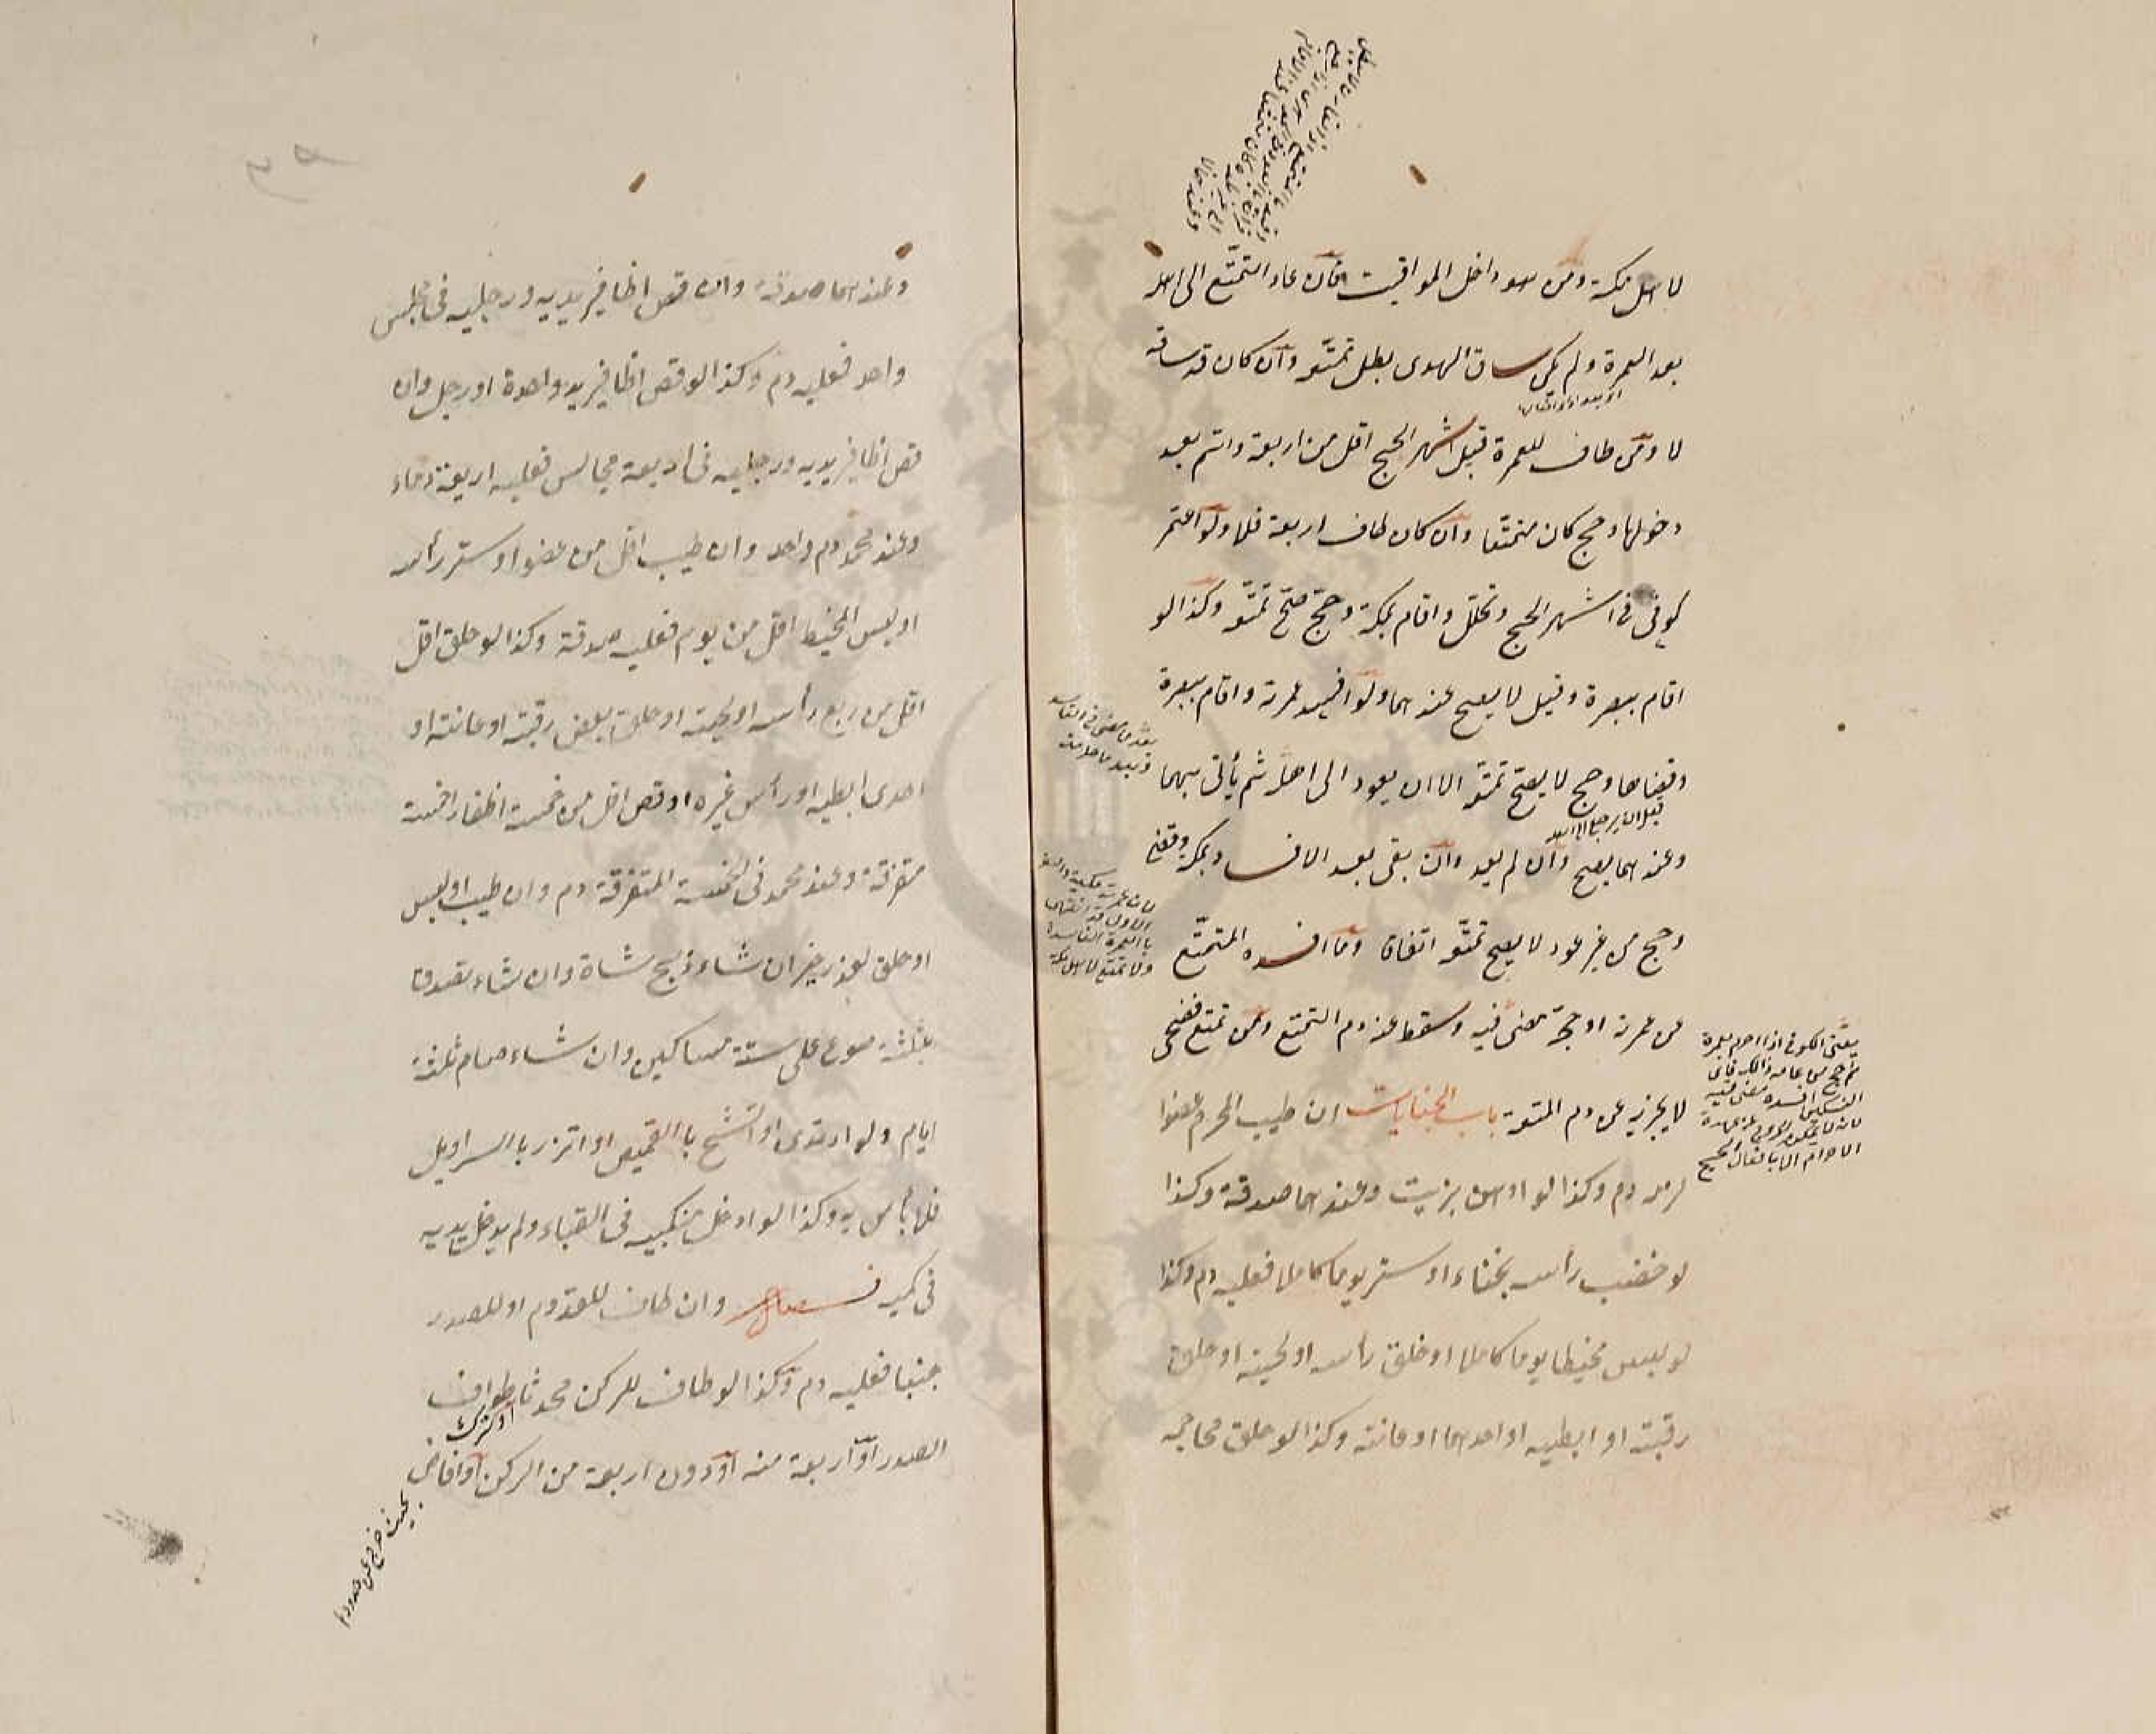 لاهل مكة ومن هو داخل المواقيت فان عاد المتمتع الى اهله
بعد العمرة ولم يكن ساق الهدى بطل تمتعه وان كان قد ساقه
لا ومن طاف للعمرة قبل اشهر الحج اقل من اربعة واتم بعد
دخولها وحج كان متمتعا وان كان طاف اربعة فلا ولو اعتمر
كوفى فى اشهر الحج وتحلل واقام بمكة وحج صح تمتعه وكذا لو
اقام ببصرة وقيل لا يصح عندهما ولو افسد عمرته واقام ببصرة
وقضاها وحج لا يصح تمتعه الا ان يعود الى اهله ثم يأتى بهما
قبل ان يرجع الى اهله
وعندهما يصح وان لم يعد وان بقى بعد الافساد بمكة وقضى
وحج من غير عود لا يصح تمتعه اتفاقا وما افسده المتمتع
من عمرته او حجه مضى فيه وسقط عنه دم التمتع ومن تمتع فضحى
لا يجزيه عن دم المتعة باب الجنايات ان طيب المحرم عضوا
لزمه دم وكذا لو ادهن بزيت وعندهما صدقة وكذا
لو خضب رأسه بحناء او ستره يوما كاملا فعليه دم وكذا
لو لبس مخيطا يوما كاملا او حلق رأسه او لحيته او حلق
رقبته او ابطيه او احدهما او عانته وكذا لو حلق محاجمه
يعنى الكوفى اذا احرم بعمرة
ثم حج من عامه ذلك فاى
النسكين افسده مضى فيه
لانه لا يمكنه الخروج عن عهدة
الاحرام الا بافعال الحج
وعندهما صدقة وان قص اظافير يديه ورجليه فى مجلس
واحد فعليه دم وكذا لو قص اظافير يد واحدة او رجل وان
قص اظافير يديه ورجليه فى اربعة مجالس فعليه اربعة دماء
وعند محمد دم واحد وان طيب اقل من عضو او ستر رأسه
او لبس المخيط اقل من يوم فعليه صدقة وكذا لو حلق اقل
اقل من ربع رأسه او لحيته او حلق بعض رقبته او عانته او
احدى ابطيه او رأس غيره او قص اقل من خمسة اظفار او خمسة
متفرقة وعند محمد فى الخمسة المتفرقة دم وان طيب او لبس
او حلق لعذر خير ان شاء ذبح شاة وان شاء تصدق
بثلثة صوع على ستة مساكين وان شاء صام ثلثة
ايام ولو ارتدى او اتشح بالقميص او اتزر بالسراويل
فلا بأس به وكذا لو ادخل منكبيه فى القباء ولم يدخل يديه
فى كميه فصل وان طاف للقدوم او للصدر
جنبا فعليه دم وكذا لو طاف للركن محدثا او ترك طواف
الصدر او اربعة منه او دون اربعة من الركن او افاض
بحيث خرج عن حدودها